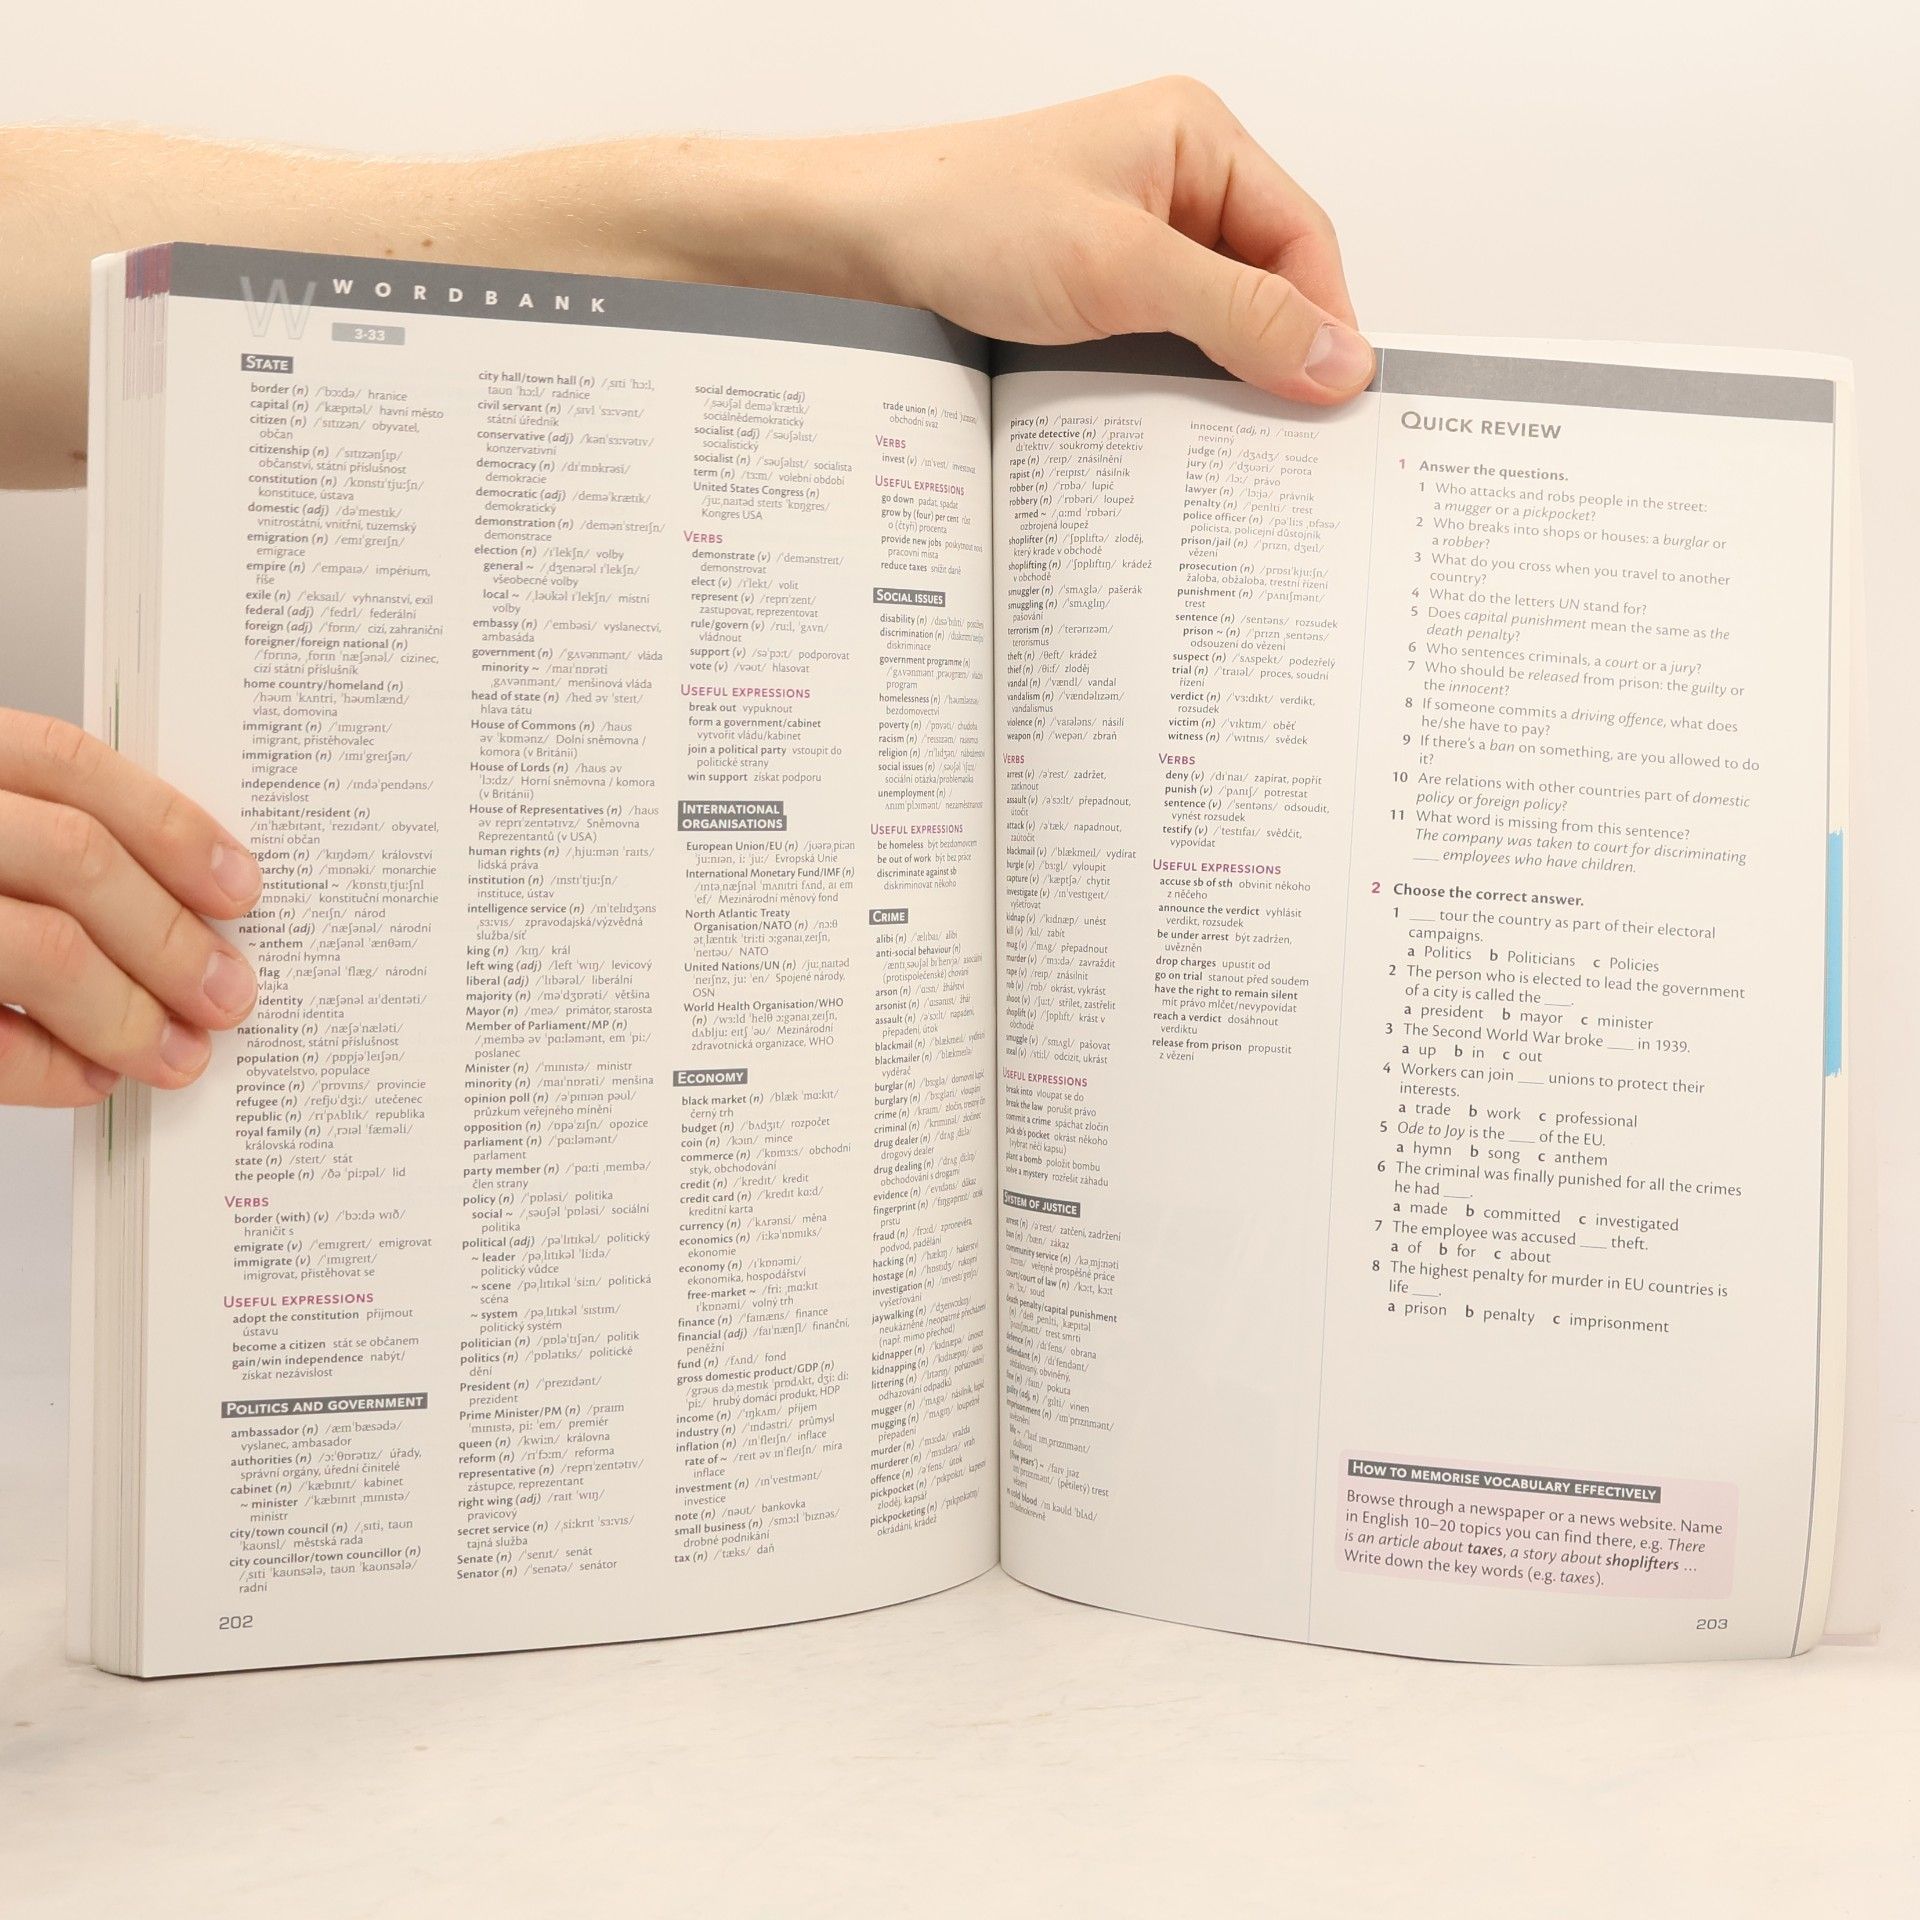 W WORDBANK
3-33
STATE
border (n) /ˈbɔːdə/ hranice
capital (n) /ˈkæpɪtəl/ havní město
citizen (n) /ˈsɪtɪzən/ obyvatel,
občan
citizenship (n) /ˈsɪtɪzənʃɪp/
občanství, státní příslušnost
constitution (n) /kɒnstɪˈtjuːʃn/
konstituce, ústava
domestic (adj) /dəˈmestɪk/
vnitrostátní, vnitřní, tuzemský
emigration (n) /emɪˈɡreɪʃn/
emigrace
empire (n) /ˈempaɪə/ impérium,
říše
exile (n) /ˈeksaɪl/ vyhnanství, exil
federal (adj) /ˈfedrl/ federální
foreign (adj) /ˈfɒrɪn/ cizí, zahraniční
foreigner/foreign national (n)
/ˈfɒrɪnə, ˌfɒrɪn ˈnæʃənəl/ cizinec,
cizí státní příslušník
home country/homeland (n)
/həʊm ˈkʌntri, ˈhəʊmlænd/
vlast, domovina
immigrant (n) /ˈɪmɪɡrənt/
imigrant, přistěhovalec
immigration (n) /ɪmɪˈɡreɪʃən/
imigrace
independence (n) /ɪndəˈpendəns/
nezávislost
inhabitant/resident (n)
/ɪnˈhæbɪtənt, ˈrezɪdənt/ obyvatel,
místní občan
ngdom (n) /ˈkɪŋdəm/ království
narchy (n) /ˈmɒnəki/ monarchie
nstitutional ~ /kɒnstɪˌtjuːʃnl
ˈmɒnəki/ konstituční monarchie
nation (n) /ˈneɪʃn/ národ
national (adj) /ˈnæʃənəl/ národní
~ anthem /ˌnæʃənəl ˈænθəm/
národní hymna
flag /ˌnæʃənəl ˈflæɡ/ národní
vlajka
identity /ˌnæʃənəl aɪˈdentəti/
národní identita
nationality (n) /næʃəˈnæləti/
národnost, státní příslušnost
population (n) /pɒpjəˈleɪʃən/
obyvatelstvo, populace
province (n) /ˈprɒvɪns/ provincie
refugee (n) /refjʊˈdʒiː/ utečenec
republic (n) /rɪˈpʌblɪk/ republika
royal family (n) /ˌrɔɪəl ˈfæməli/
královská rodina
state (n) /steɪt/ stát
the people (n) /ðə ˈpiːpəl/ lid
VERBS
border (with) (v) /ˈbɔːdə wɪð/
hraničit s
emigrate (v) /ˈemɪɡreɪt/ emigrovat
immigrate (v) /ˈɪmɪɡreɪt/
imigrovat, přistěhovat se
USEFUL EXPRESSIONS
adopt the constitution přijmout
ústavu
become a citizen stát se občanem
gain/win independence nabýt/
získat nezávislost
POLITICS AND GOVERNMENT
ambassador (n) /æmˈbæsədə/
vyslanec, ambasador
authorities (n) /ɔːˈθɒrətɪz/ úřady,
správní orgány, úřední činitelé
cabinet (n) /ˈkæbɪnɪt/ kabinet
~ minister /ˈkæbɪnɪt ˌmɪnɪstə/
ministr
city/town council (n) /ˌsɪti, taʊn
ˈkaʊnsl/ městská rada
city councillor/town councillor (n)
/ˌsɪti ˈkaʊnsələ, taʊn ˈkaʊnsələ/
radní
202
city hall/town hall (n) /ˌsɪti ˈhɔːl,
taʊn ˈhɔːl/ radnice
civil servant (n) /ˌsɪvl ˈsɜːvənt/
státní úředník
conservative (adj) /kənˈsɜːvətɪv/
konzervativní
democracy (n) /dɪˈmɒkrəsi/
demokracie
democratic (adj) /deməˈkrætɪk/
demokratický
demonstration (n) /demənˈstreɪʃn/
demonstrace
election (n) /ɪˈlekʃn/ volby
general ~ /ˌdʒenərəl ɪˈlekʃn/
všeobecné volby
local ~ /ˌləʊkəl ɪˈlekʃn/ místní
volby
embassy (n) /ˈembəsi/ vyslanectví,
ambasáda
government (n) /ˈɡʌvənmənt/ vláda
minority ~ /maɪˈnɒrəti
ˌɡʌvənmənt/ menšinová vláda
head of state (n) /hed əv ˈsteɪt/
hlava státu
House of Commons (n) /haʊs
əv ˈkɒmənz/ Dolní sněmovna /
komora (v Británii)
House of Lords (n) /haʊs əv
ˈlɔːdz/ Horní sněmovna / komora
(v Británii)
House of Representatives (n) /haʊs
əv reprɪˈzentətɪvz/ Sněmovna
Reprezentantů (v USA)
human rights (n) /ˌhjuːmən ˈraɪts/
lidská práva
institution (n) /ɪnstɪˈtjuːʃn/
instituce, ústav
intelligence service (n) /ɪnˈtelɪdʒəns
ˌsɜːvɪs/ zpravodajská/výzvědná
služba/síť
king (n) /kɪŋ/ král
left wing (adj) /left ˈwɪŋ/ levicový
liberal (adj) /ˈlɪbərəl/ liberální
majority (n) /məˈdʒɒrəti/ většina
Mayor (n) /meə/ primátor, starosta
Member of Parliament/MP (n)
/ˌmembə əv ˈpɑːləmənt, em ˈpiː/
poslanec
Minister (n) /ˈmɪnɪstə/ ministr
minority (n) /maɪˈnɒrəti/ menšina
opinion poll (n) /əˈpɪnɪən pəʊl/
průzkum veřejného mínění
opposition (n) /ɒpəˈzɪʃn/ opozice
parliament (n) /ˈpɑːləmənt/
parlament
party member (n) /ˈpɑːti ˌmembə/
člen strany
policy (n) /ˈpɒləsi/ politika
social ~ /ˌsəʊʃəl ˈpɒləsi/ sociální
politika
political (adj) /pəˈlɪtɪkəl/ politický
~ leader /pəˌlɪtɪkəl ˈliːdə/
politický vůdce
~ scene /pəˌlɪtɪkəl ˈsiːn/ politická
scéna
~ system /pəˌlɪtɪkəl ˈsɪstɪm/
politický systém
politician (n) /pɒləˈtɪʃən/ politik
politics (n) /ˈpɒlətɪks/ politické
dění
President (n) /ˈprezɪdənt/
prezident
Prime Minister/PM (n) /praɪm
ˈmɪnɪstə, piː ˈem/ premiér
queen (n) /kwiːn/ královna
reform (n) /rɪˈfɔːm/ reforma
representative (n) /reprɪˈzentətɪv/
zástupce, reprezentant
right wing (adj) /raɪt ˈwɪŋ/
pravicový
secret service (n) /ˌsiːkrɪt ˈsɜːvɪs/
tajná služba
Senate (n) /ˈsenɪt/ senát
Senator (n) /ˈsenətə/ senátor
social democratic (adj)
/ˌsəʊʃəl deməˈkrætɪk/
sociálnědemokratický
socialist (adj) /ˈsəʊʃəlɪst/
socialistický
socialist (n) /ˈsəʊʃəlɪst/ socialista
term (n) /tɜːm/ volební období
United States Congress (n)
/juːˌnaɪtəd steɪts ˈkɒŋɡres/
Kongres USA
VERBS
demonstrate (v) /ˈdemənstreɪt/
demonstrovat
elect (v) /ɪˈlekt/ volit
represent (v) /reprɪˈzent/
zastupovat, reprezentovat
rule/govern (v) /ruːl, ˈɡʌvn/
vládnout
support (v) /səˈpɔːt/ podporovat
vote (v) /vəʊt/ hlasovat
USEFUL EXPRESSIONS
break out vypuknout
form a government/cabinet
vytvořit vládu/kabinet
join a political party vstoupit do
politické strany
win support získat podporu
INTERNATIONAL
ORGANISATIONS
European Union/EU (n) /jʊərəˌpiːən
ˈjuːnɪən, iː ˈjuː/ Evropská Unie
International Monetary Fund/IMF (n)
/ɪntəˌnæʃnəl ˈmʌnɪtri fʌnd, aɪ em
ˈef/ Mezinárodní měnový fond
North Atlantic Treaty
Organisation/NATO (n) /nɔːθ
ətˌlæntɪk ˈtriːti ɔːɡənaɪˌzeɪʃn,
ˈneɪtəʊ/ NATO
United Nations/UN (n) /juːˌnaɪtəd
ˈneɪʃnz, juː ˈen/ Spojené národy,
OSN
World Health Organisation/WHO
(n) /wɜːld ˈhelθ ɔːɡənaɪˌzeɪʃn,
dʌbljuː eɪtʃ ˈəʊ/ Mezinárodní
zdravotnická organizace, WHO
ECONOMY
black market (n) /blæk ˈmɑːkɪt/
černý trh
budget (n) /ˈbʌdʒɪt/ rozpočet
coin (n) /kɔɪn/ mince
commerce (n) /ˈkɒmɜːs/ obchodní
styk, obchodování
credit (n) /ˈkredɪt/ kredit
credit card (n) /ˈkredɪt kɑːd/
kreditní karta
currency (n) /ˈkʌrənsi/ měna
economics (n) /iːkəˈnɒmɪks/
ekonomie
economy (n) /ɪˈkɒnəmi/
ekonomika, hospodářství
free-market ~ /friː ˌmɑːkɪt
ɪˈkɒnəmi/ volný trh
finance (n) /ˈfaɪnæns/ finance
financial (adj) /faɪˈnænʃl/ finanční,
peněžní
fund (n) /fʌnd/ fond
gross domestic product/GDP (n)
/ɡrəʊs dəˌmestɪk ˈprɒdʌkt, dʒiː diː
ˈpiː/ hrubý domácí produkt, HDP
income (n) /ˈɪŋkʌm/ příjem
industry (n) /ˈɪndəstri/ průmysl
inflation (n) /ɪnˈfleɪʃn/ inflace
rate of ~ /reɪt əv ɪnˈfleɪʃn/ míra
inflace
investment (n) /ɪnˈvestmənt/
investice
note (n) /nəʊt/ bankovka
small business (n) /smɔːl ˈbɪznəs/
drobné podnikání
tax (n) /tæks/ daň
trade union (n) /treɪd ˈjuːnɪən/
obchodní svaz
VERBS
invest (v) /ɪnˈvest/ investovat
USEFUL EXPRESSIONS
go down padat, spadat
grow by (four) per cent růst
o (čtyři) procenta
provide new jobs poskytnout nová
pracovní místa
reduce taxes snížit daně
SOCIAL ISSUES
disability (n) /dɪsəˈbɪləti/
discrimination (n)
diskriminace
government programme (n)
/ˈɡʌvənmənt ˌprəʊɡræm/ vládní
program
homelessness (n)
bezdomovectví
poverty (n) /ˈpɒvəti/ chudoba
racism (n) /ˈreɪsɪzəm/ rasismus
religion (n) /rɪˈlɪdʒən/ náboženství
social issues (n)
sociální otázka/problematika
unemployment (n)
/ʌnɪmˈplɔɪmənt/ nezaměstnanost
USEFUL EXPRESSIONS
be homeless být bezdomovcem
be out of work být bez práce
discriminate against sb
diskriminovat někoho
CRIME
alibi (n) /ˈælɪbaɪ/ alibi
anti-social behaviour (n)
(protispolečenské) chování
arson (n) /ˈɑːsn/ žhářství
arsonist (n) /ˈɑːsənɪst/ žhář
assault (n) /əˈsɔːlt/ napadení,
přepadení, útok
blackmail (n) /ˈblækmeɪl/ vydírání
blackmailer (n) /ˈblækmeɪlə/
vyděrač
burglar (n) /ˈbɜːɡlə/ domovní lupič
burglary (n) /ˈbɜːɡləri/ vloupání
crime (n) /kraɪm/ zločin, trestný čin
criminal (n) /ˈkrɪmɪnəl/ zločinec
drug dealer (n) /ˈdrʌɡ ˌdiːlə/
drogový dealer
drug dealing (n) /ˈdrʌɡ ˌdiːlɪŋ/
obchodování s drogami
evidence (n) /ˈevɪdəns/ důkaz
fingerprint (n) /ˈfɪŋɡəprɪnt/ otisk
prstu
fraud (n) /frɔːd/ zpronevěra,
podvod, padělání
hacking (n) /ˈhækɪŋ/ hakerství
hostage (n) /ˈhɒstɪdʒ/ rukojmí
investigation (n) /ɪnvestɪˈɡeɪʃn/
vyšetřování
jaywalking (n) /ˈdʒeɪwɔːkɪŋ/
neukázněné/neopatrné přecházení
(např. mimo přechod)
kidnapper (n) /ˈkɪdnæpə/ únosce
kidnapping (n) /ˈkɪdnæpɪŋ/ únos
littering (n) /ˈlɪtərɪŋ/ pohazování
odhazování odpadků
mugger (n) /ˈmʌɡə/ násilník, lupič
mugging (n) /ˈmʌɡɪŋ/ loupežné
přepadení
murder (n) /ˈmɜːdə/ vražda
murderer (n) /ˈmɜːdərə/ vrah
offence (n) /əˈfens/ útok
pickpocket (n) /ˈpɪkpɒkɪt/ kapesní
zloděj, kapsář
pickpocketing (n) /ˈpɪkpɒkətɪŋ/
okrádání, krádež
piracy (n) /ˈpaɪrəsi/ pirátství
private detective (n) /ˌpraɪvət
dɪˈtektɪv/ soukromý detektiv
rape (n) /reɪp/ znásilnění
rapist (n) /ˈreɪpɪst/ násilník
robber (n) /ˈrɒbə/ lupič
robbery (n) /ˈrɒbəri/ loupež
armed ~ /ˌɑːmd ˈrɒbəri/
ozbrojená loupež
shoplifter (n) /ˈʃɒplɪftə/ zloděj,
který krade v obchodě
shoplifting (n) /ˈʃɒplɪftɪŋ/ krádež
v obchodě
smuggler (n) /ˈsmʌɡlə/ pašerák
smuggling (n) /ˈsmʌɡlɪŋ/
pašování
terrorism (n) /ˈterərɪzəm/
terorismus
theft (n) /θeft/ krádež
thief (n) /θiːf/ zloděj
vandal (n) /ˈvændl/ vandal
vandalism (n) /ˈvændəlɪzəm/
vandalismus
violence (n) /ˈvaɪələns/ násilí
weapon (n) /ˈwepən/ zbraň
VERBS
arrest (v) /əˈrest/ zadržet,
zatknout
assault (v) /əˈsɔːlt/ přepadnout,
útočit
attack (v) /əˈtæk/ napadnout,
zaútočit
blackmail (v) /ˈblækmeɪl/ vydírat
burgle (v) /ˈbɜːɡl/ vyloupit
capture (v) /ˈkæptʃə/ chytit
investigate (v) /ɪnˈvestɪɡeɪt/
vyšetřovat
kidnap (v) /ˈkɪdnæp/ unést
kill (v) /kɪl/ zabít
mug (v) /ˈmʌɡ/ přepadnout
murder (v) /ˈmɜːdə/ zavraždit
rape (v) /reɪp/ znásilnit
rob (v) /rɒb/ okrást, vykrást
shoot (v) /ʃuːt/ střílet, zastřelit
shoplift (v) /ˈʃɒplɪft/ krást v
obchodě
smuggle (v) /ˈsmʌɡl/ pašovat
steal (v) /stiːl/ odcizit, ukrást
USEFUL EXPRESSIONS
break into vloupat se do
break the law porušit právo
commit a crime spáchat zločin
pick sb's pocket okrást někoho
(vybrat něčí kapsu)
plant a bomb položit bombu
solve a mystery rozřešit záhadu
SYSTEM OF JUSTICE
arrest (n) /əˈrest/ zatčení, zadržení
ban (n) /bæn/ zákaz
community service (n) /kəˌmjuːnəti
veřejně prospěšné práce
court/court of law (n) /kɔːt, kɔːt
əv ˈlɔː/ soud
death penalty/capital punishment
(n) /deθ penlti, ˌkæpɪtəl
ˈpʌnɪʃmənt/ trest smrti
defence (n) /dɪˈfens/ obrana
defendant (n) /dɪˈfendənt/
obžalovaný, obviněný
fine (n) /faɪn/ pokuta
guilty (adj, n) /ˈɡɪlti/ vinen
imprisonment (n) /ɪmˈprɪznmənt/
uvěznění
life ~ /ˈlaɪf ɪmˌprɪznmənt/
doživotí
(five years') ~ /faɪv jɪəz
ɪmˈprɪznmənt/ (pětiletý) trest
vězení
in cold blood /ɪn kəʊld ˈblʌd/
chladnokrevně
innocent (adj, n) /ˈɪnəsnt/
nevinný
judge (n) /dʒʌdʒ/ soudce
jury (n) /ˈdʒʊəri/ porota
law (n) /lɔː/ právo
lawyer (n) /ˈlɔːjə/ právník
penalty (n) /ˈpenlti/ trest
police officer (n) /pəˈliːs ˌɒfəsə/
policista, policejní důstojník
prison/jail (n) /ˈprɪzn, dʒeɪl/
vězení
prosecution (n) /prɒsɪˈkjuːʃn/
žaloba, obžaloba, trestní řízení
punishment (n) /ˈpʌnɪʃmənt/
trest
sentence (n) /ˈsentəns/ rozsudek
prison ~ (n) /ˈprɪzn ˌsentəns/
odsouzení do vězení
suspect (n) /ˈsʌspekt/ podezřelý
trial (n) /ˈtraɪəl/ proces, soudní
řízení
verdict (n) /ˈvɜːdɪkt/ verdikt,
rozsudek
victim (n) /ˈvɪktɪm/ oběť
witness (n) /ˈwɪtnɪs/ svědek
VERBS
deny (v) /dɪˈnaɪ/ zapírat, popřít
punish (v) /ˈpʌnɪʃ/ potrestat
sentence (v) /ˈsentəns/ odsoudit,
vynést rozsudek
testify (v) /ˈtestɪfaɪ/ svědčit,
vypovídat
USEFUL EXPRESSIONS
accuse sb of sth obvinit někoho
z něčeho
announce the verdict vyhlásit
verdikt, rozsudek
be under arrest být zadržen,
uvězněn
drop charges upustit od
go on trial stanout před soudem
have the right to remain silent
mít právo mlčet/nevypovídat
reach a verdict dosáhnout
verdiktu
release from prison propustit
z vězení
QUICK REVIEW
1 Answer the questions.
1 Who attacks and robs people in the street:
a mugger or a pickpocket?
2 Who breaks into shops or houses: a burglar or
a robber?
3 What do you cross when you travel to another
country?
4 What do the letters UN stand for?
5 Does capital punishment mean the same as the
death penalty?
6 Who sentences criminals, a court or a jury?
7 Who should be released from prison: the guilty or
the innocent?
8 If someone commits a driving offence, what does
he/she have to pay?
9 If there's a ban on something, are you allowed to do
it?
10 Are relations with other countries part of domestic
policy or foreign policy?
11 What word is missing from this sentence?
The company was taken to court for discriminating
___ employees who have children.
2 Choose the correct answer.
1 ___ tour the country as part of their electoral
campaigns.
a Politics b Politicians c Policies
2 The person who is elected to lead the government
of a city is called the ___.
a president b mayor c minister
3 The Second World War broke ___ in 1939.
a up b in c out
4 Workers can join ___ unions to protect their
interests.
a trade b work c professional
5 Ode to Joy is the ___ of the EU.
a hymn b song c anthem
6 The criminal was finally punished for all the crimes
he had ___.
a made b committed c investigated
7 The employee was accused ___ theft.
a of b for c about
8 The highest penalty for murder in EU countries is
life ___.
a prison b penalty c imprisonment
HOW TO MEMORISE VOCABULARY EFFECTIVELY
Browse through a newspaper or a news website. Name
in English 10–20 topics you can find there, e.g. There
is an article about taxes, a story about shoplifters ...
Write down the key words (e.g. taxes).
203